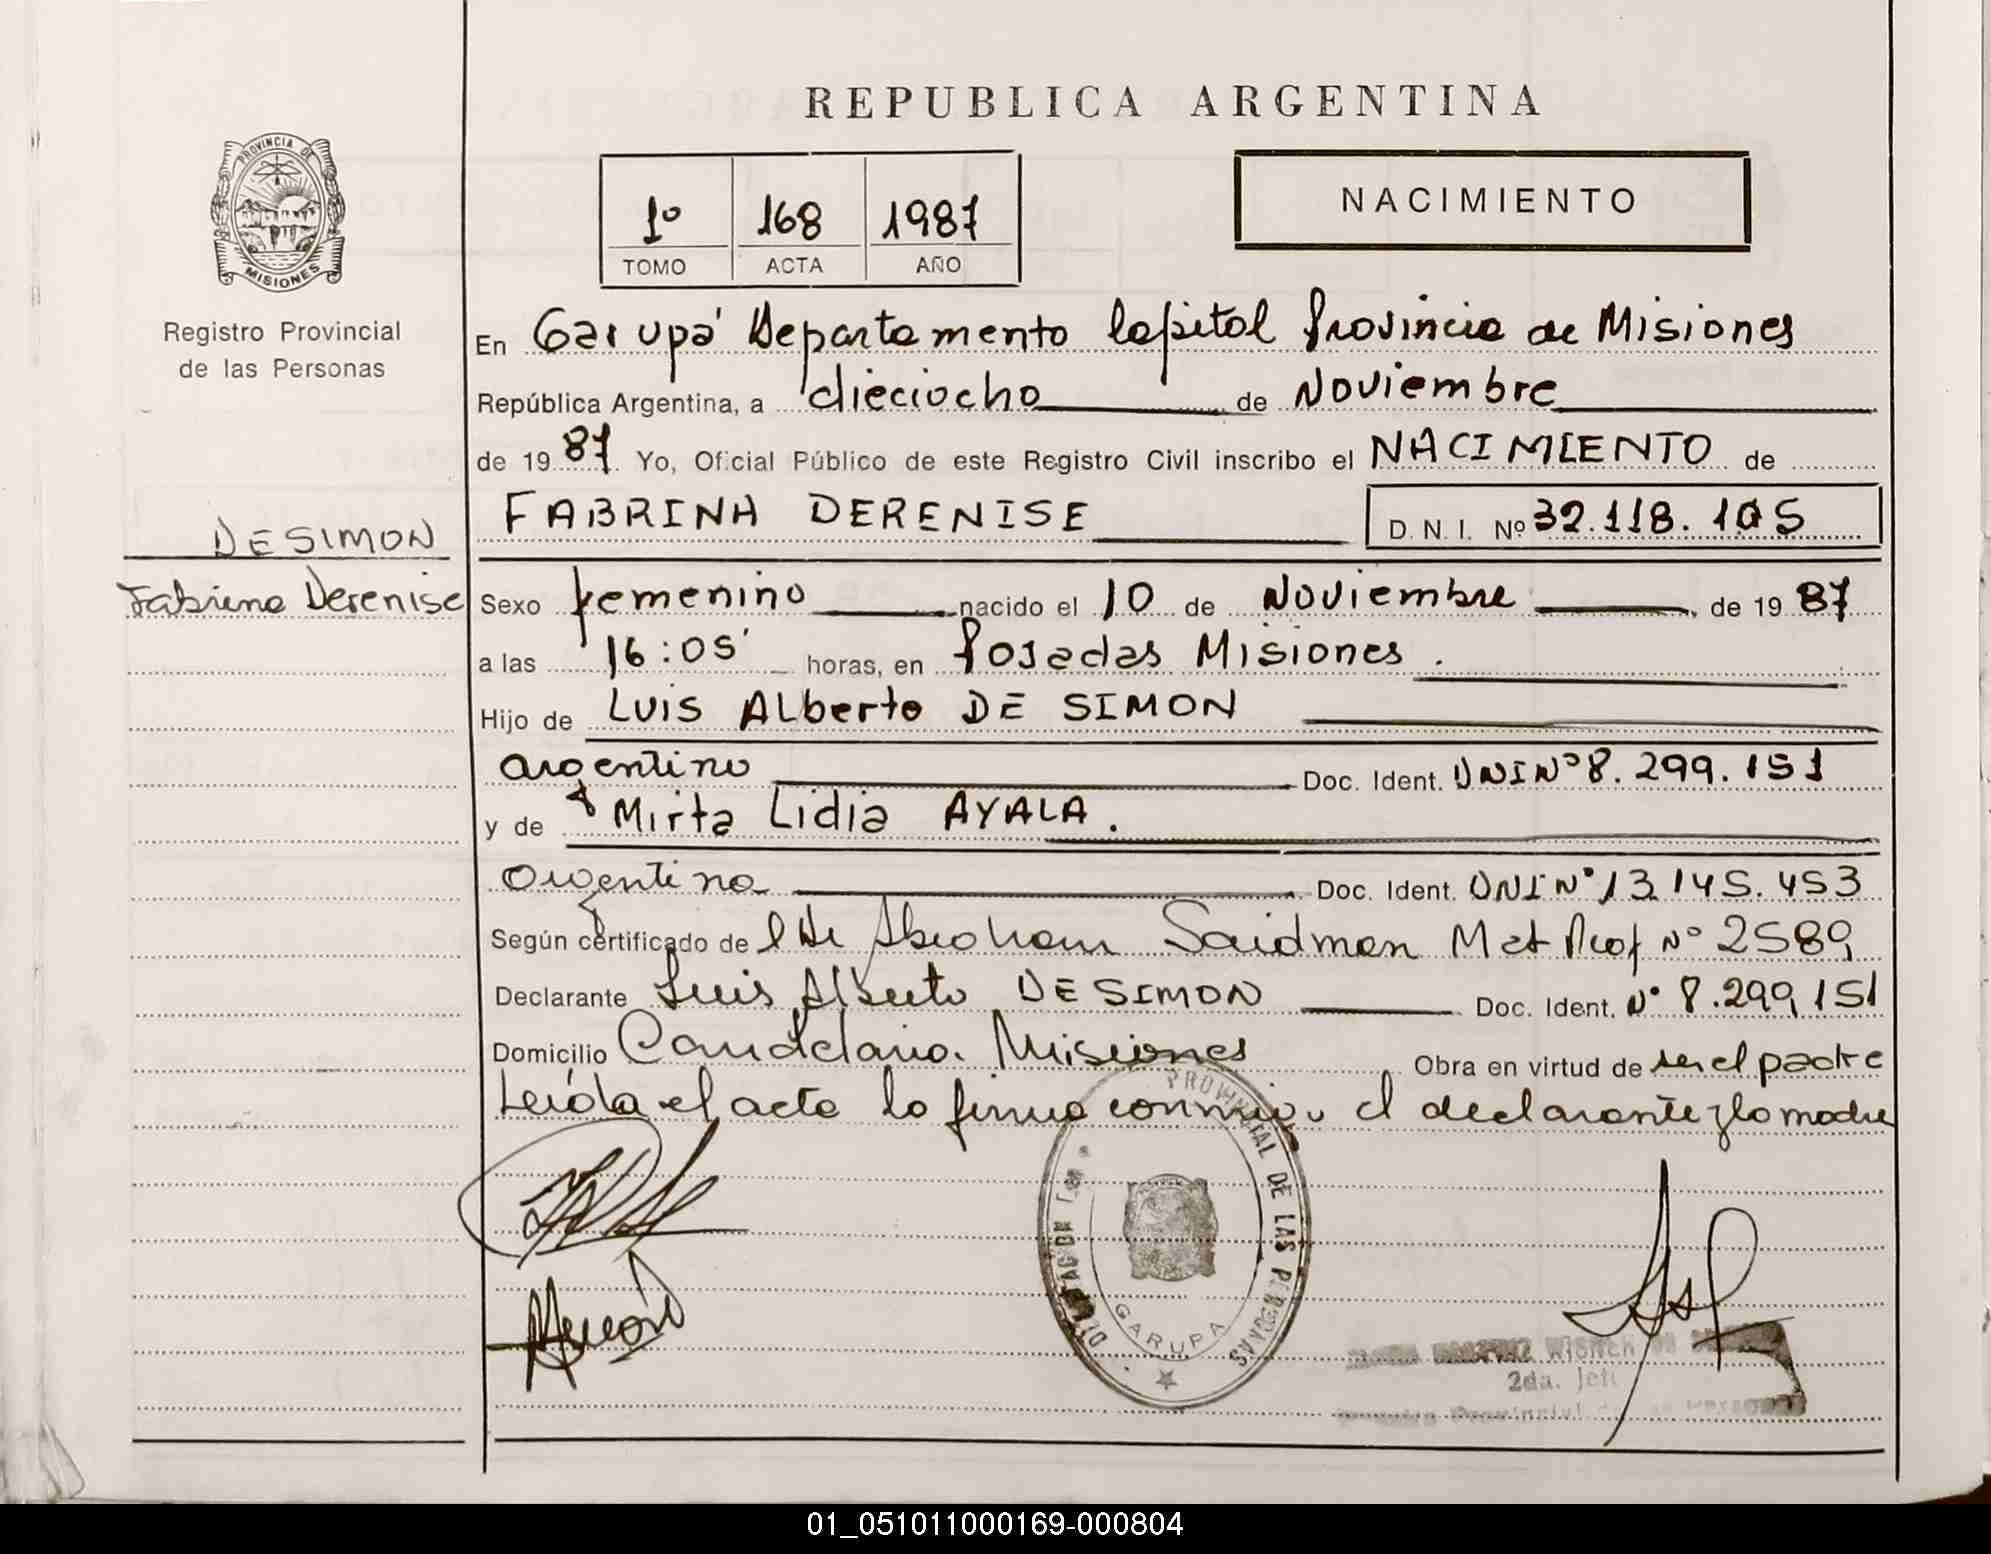 REPUBLICA ARGENTINA
PROVINCIA DE
MISIONES
Registro Provincial
de las Personas
1º 168 1987
TOMO ACTA AÑO
NACIMIENTO
En Garupá Departamento Capital Provincia de Misiones
República Argentina, a dieciocho de Noviembre
de 1987 Yo, Oficial Público de este Registro Civil inscribo el NACIMIENTO de
FABRINA DERENISE D. N. I. Nº 32.118.105
DE SIMON
Fabrina Derenise
Sexo femenino nacido el 10 de Noviembre de 1987
a las 16:05' horas, en Posadas Misiones.
Hijo de Luis Alberto DE SIMON
argentino Doc. Ident. DNI Nº 8.299.151
y de Mirta Lidia AYALA.
argentina Doc. Ident. DNI Nº 13.145.453
Según certificado de Abraham Saidman Mat Prof Nº 2589
Declarante Luis Alberto DE SIMON Doc. Ident. Nº 8.299.151
Domicilio Candelaria. Misiones Obra en virtud de ser el padre
Leída el acta la firma conmigo el declarante y la madre
PROVINCIAL DE LAS PERSONAS
GARUPA
2da. Jefe
Provincial
01_051011000169-000804